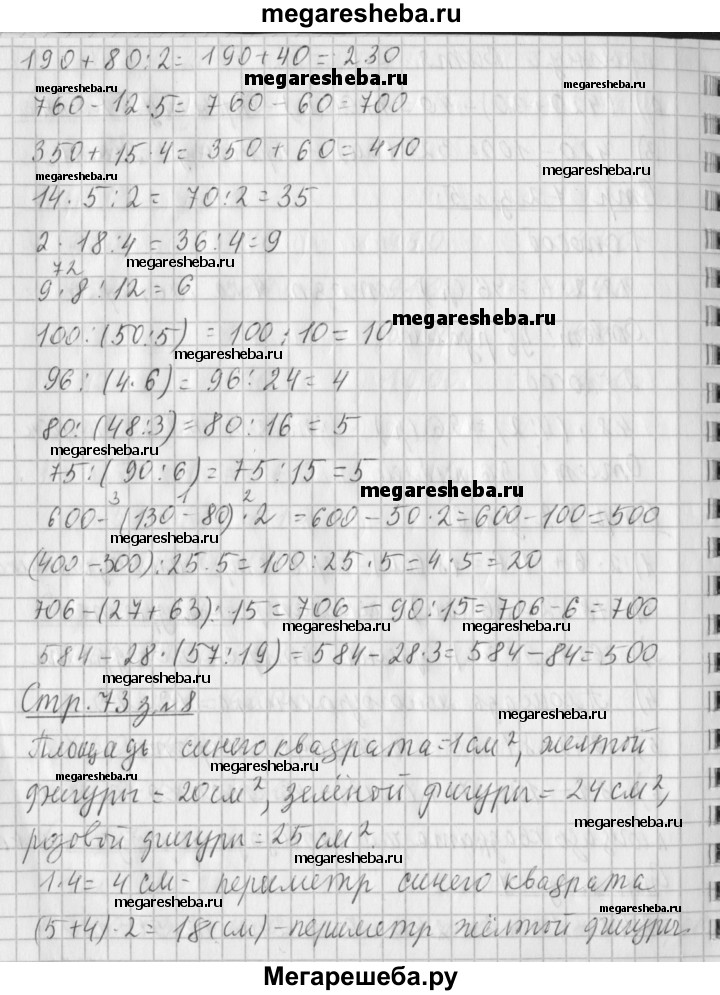 megaresheba.ru
190+80:2= 190+40=230
megaresheba.ru megaresheba.ru
760-12·5= 760-60=700
350+15·4= 350+60=410
megaresheba.ru megaresheba.ru
14·5:2= 70:2=35
2·18:4=36:4=9
72 megaresheba.ru
9·8:12=6
100:(50:5)=100:10=10 megaresheba.ru
megaresheba.ru
96:(4·6)=96:24=4
80:(48:3)=80:16=5
megaresheba.ru
75:(90:6)=75:15=5
megaresheba.ru
3 1 2
600-(130-80)·2=600-50·2=600-100=500
megaresheba.ru
(400-300):25·5=100:25·5=4·5=20
706-(27+63):15=706-90:15=706-6=700
megaresheba.ru megaresheba.ru
584-28·(57:19)=584-28·3=584-84=500
Стр.73 з.№8
megaresheba.ru
Площадь синего квадрата=1см², желтой
megaresheba.ru megaresheba.ru
фигуры=20см², зелёной фигуры=24см²,
megaresheba.ru
розовой фигуры=25см².
megaresheba.ru
1·4=4см- периметр синего квадрата
megaresheba.ru megaresheba.ru
(5+4)·2=18(см)-периметр жёлтой фигуры.
Мегарешеба.ру